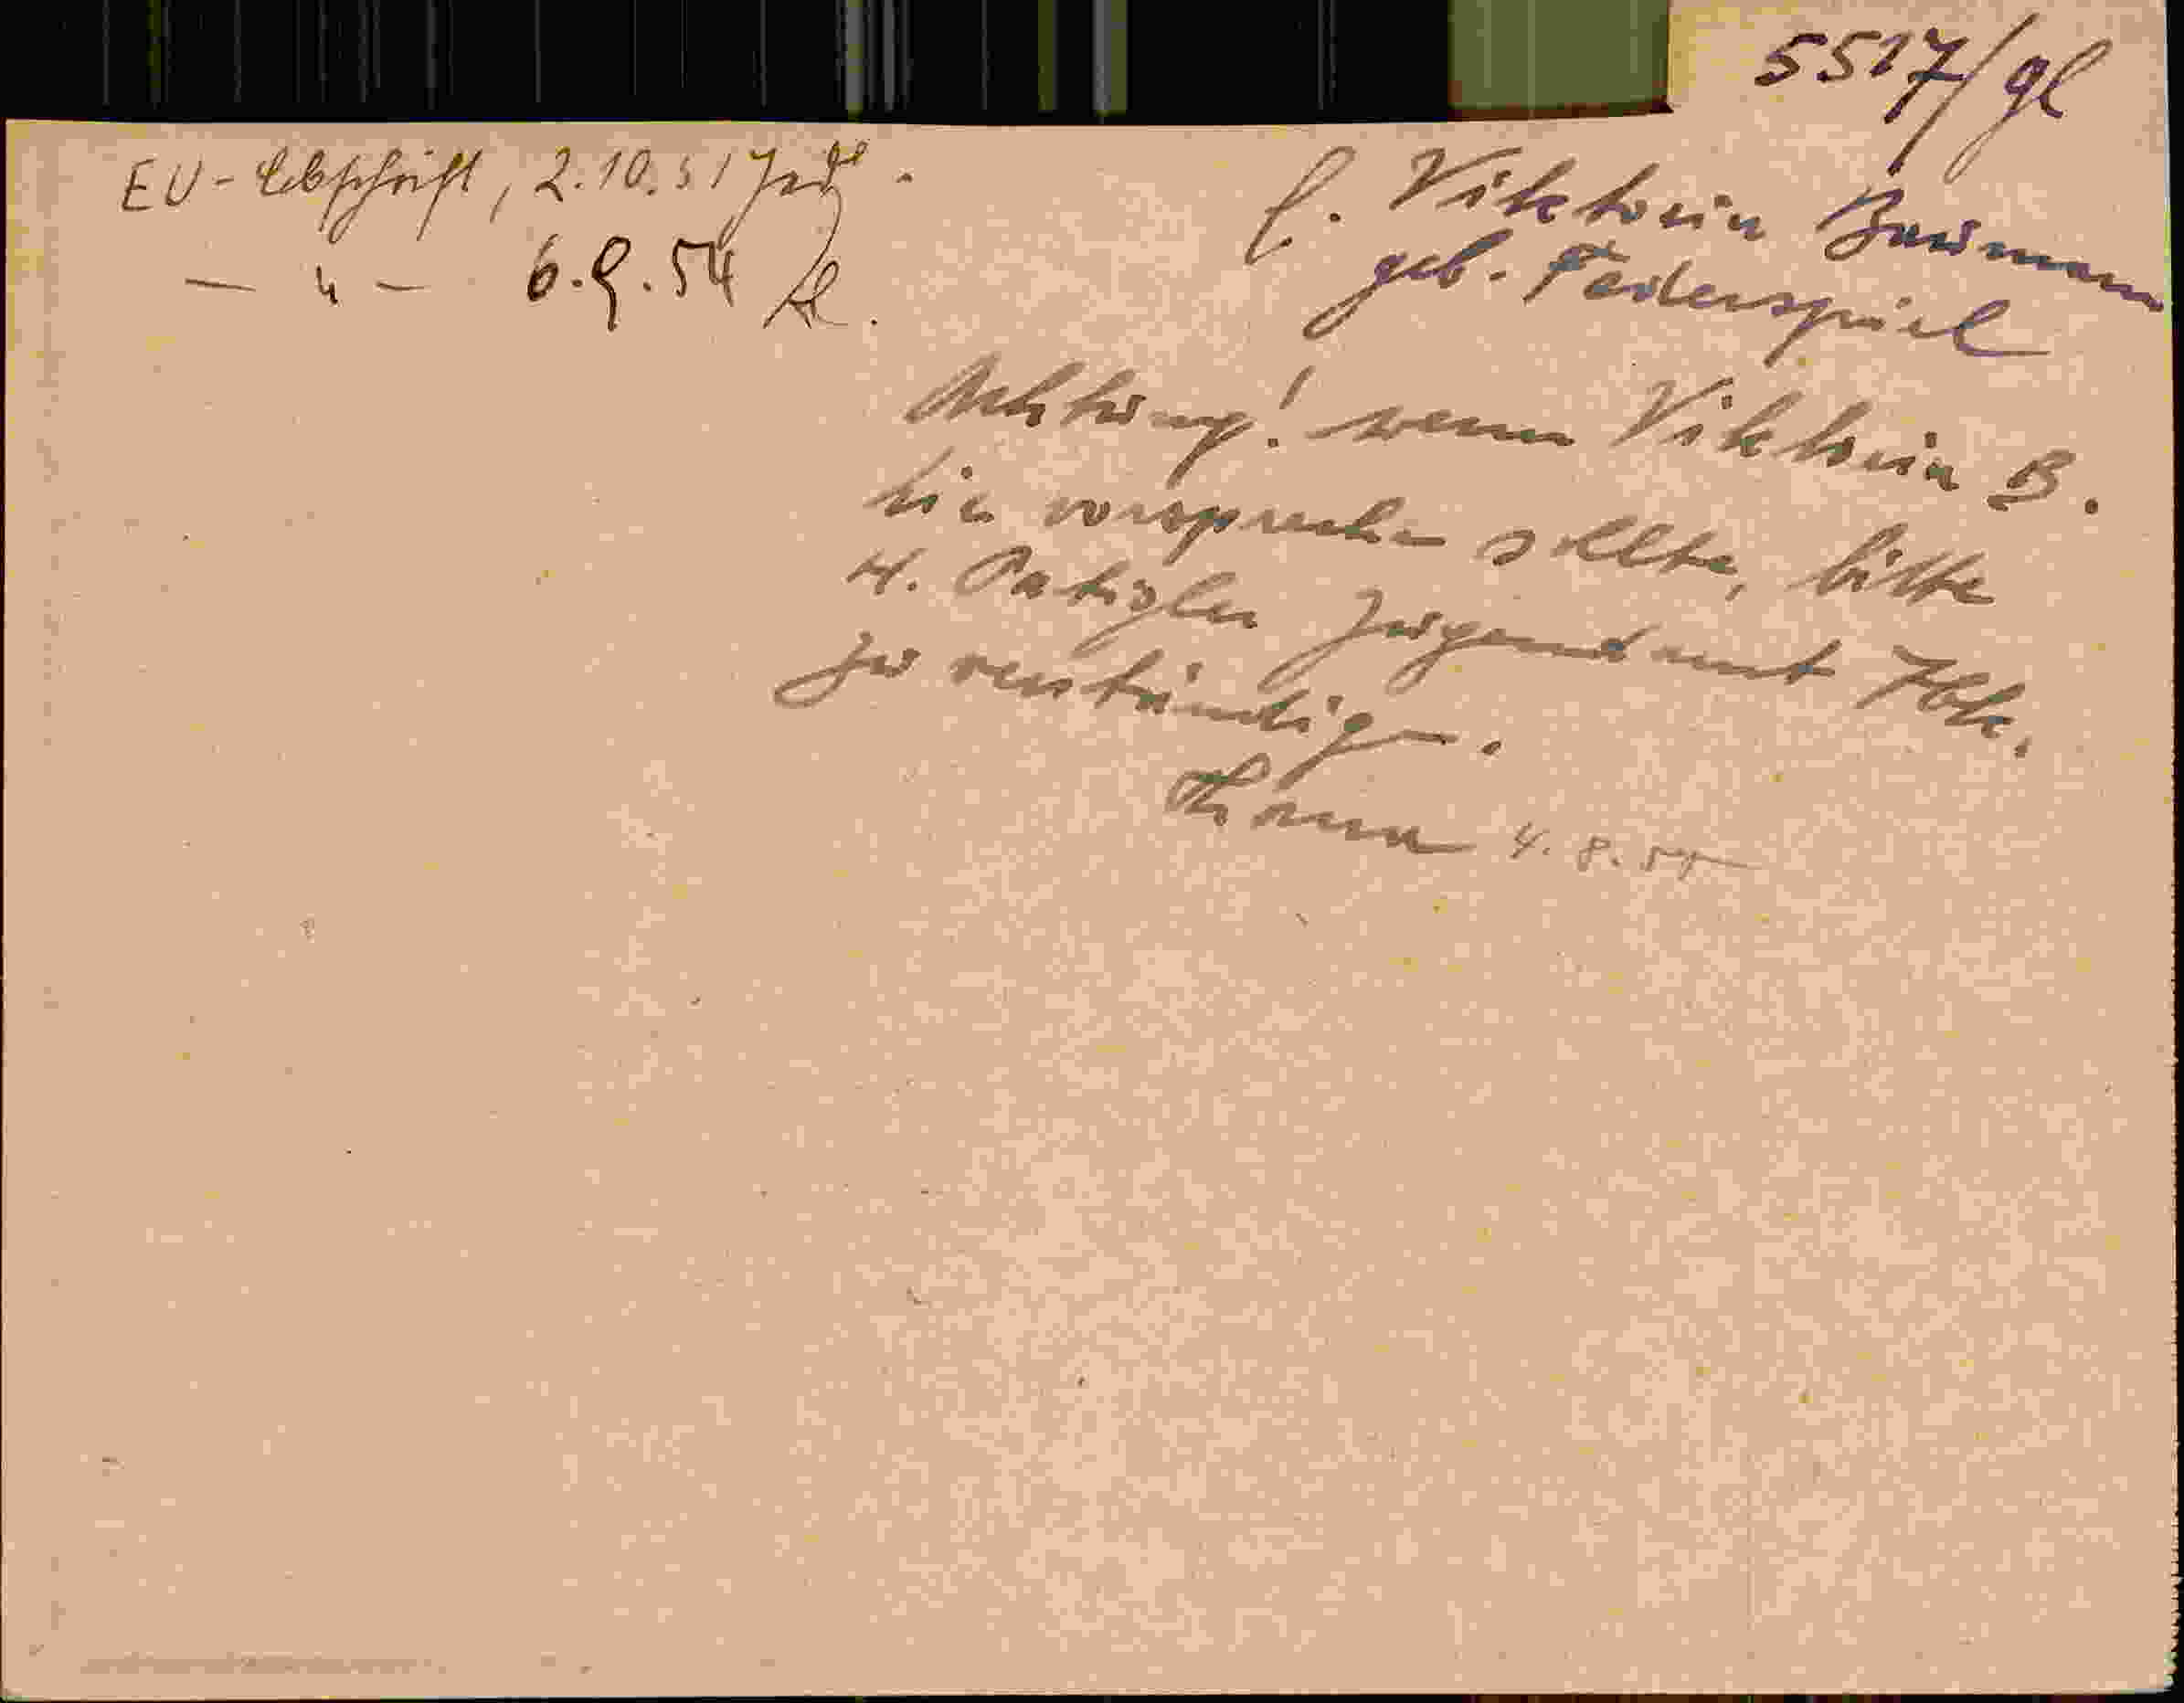 5517/gl
EU-Abschrift, 2.10.51
— " — 6.9.54
f. Viktoria Baumann
geb. Federspiel
Achtung! wenn Viktoria B.
hier vorsprechen sollte, bitte
H. Jugendamt Ibk.
zu verständigen.
4.8.54